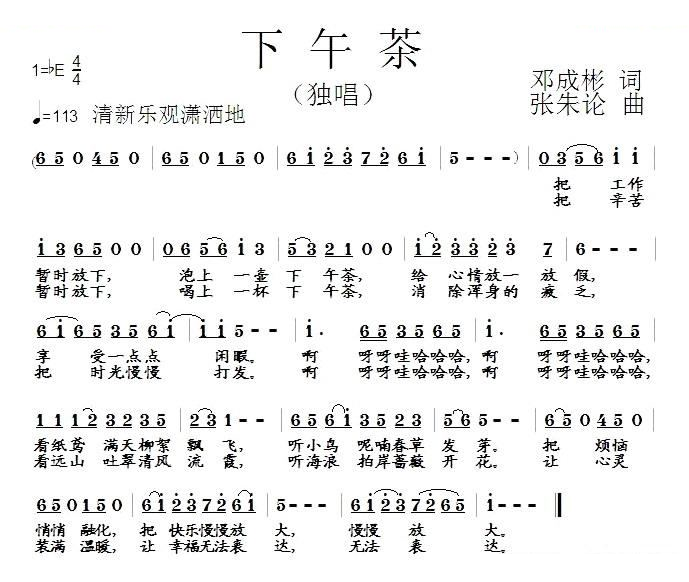 下午茶
1=♭E 4/4
（独唱）
邓成彬 词
张朱论 曲
♩=113 清新乐观潇洒地
(6 5 0 4 5 0 | 6 5 0 1 5 0 | 6 i 2 3 7 2 6 i | 5 - - ) | 0 3 5 6 i i |
把 工作
把 辛苦
i 3 6 5 0 0 | 0 6 5 6 i 3 | 5 3 2 1 0 0 | i 2 3 3 2 3 7 | 6 - - - |
暂时放下， 泡上 一壶 下 午茶， 给 心情放一 放 假，
暂时放下， 喝上 一杯 下 午茶， 消 除浑身的 疲 乏，
6 i 6 5 3 5 6 i | i i 5 - - | i . 6 5 3 5 6 5 | i . 6 5 3 5 6 5 |
享 受一点点 闲暇。 啊 呀呀哇哈哈哈，啊 呀呀哇哈哈哈，
把 时光慢慢 打发。 啊 呀呀哇哈哈哈，啊 呀呀哇哈哈哈，
i i i 2 3 2 3 5 | 2 3 i - - | 6 5 6 i 3 5 3 2 | 5 6 5 - - | 6 5 0 4 5 0 |
看纸鸢 满天柳絮 飘 飞， 听小鸟 呢喃春草 发 芽。 把 烦恼
看远山 吐翠清风 流 霞， 听海浪 拍岸蔷薇 开 花。 让 心灵
6 5 0 1 5 0 | 6 i 2 3 7 2 6 i | 5 - - - | 6 i 2 3 7 2 6 5 | i - - - ‖
悄悄 融化， 把 快乐慢慢放 大， 慢慢 放 大。
装满 温暖， 让 幸福无法表 达， 无法 表 达。